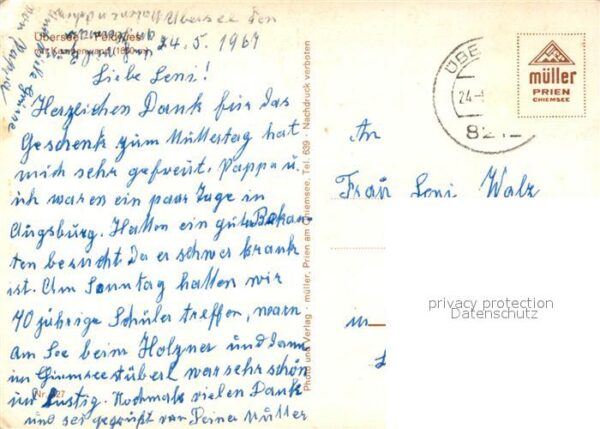 Übersee - Feldwies
mit Kampenwand (1669 m)
24.5.1967
Liebe Leni!
Herzlichen Dank für das
Geschenk zum Muttertag hat
mich sehr gefreut. Pappa u.
ich waren ein paar Tage in
Augsburg. Hatten ein gute Bekan-
ten besucht. Da er schwer krank
ist. Am Sonntag hatten wir
40 jährige Schüler treffen, warn
am See beim Holzner und dann
im Chiemseestüberl war sehr schön
u. lustig. Nochmals vielen Dank
und sei gegrüßt von Deiner Mutter
von Pappa
Grüsse
Nr. 527
Photo und Verlag · müller, Prien am Chiemsee, Tel. 639 · Nachdruck verboten
ÜBE
24.
821
müller
PRIEN
CHIEMSEE
An
Frau Leni Walz
privacy protection
Datenschutz
in